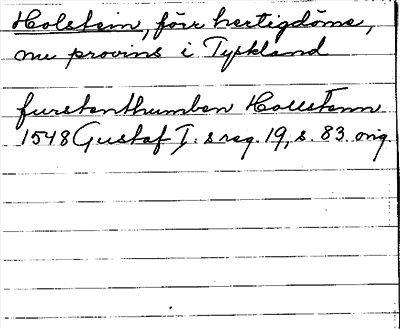 Holstein, förr hertigdöme,
nu provins i Tyskland
furstenthumben Hollstenn
1548 Gustaf I:s reg. 19, s. 83. orig.